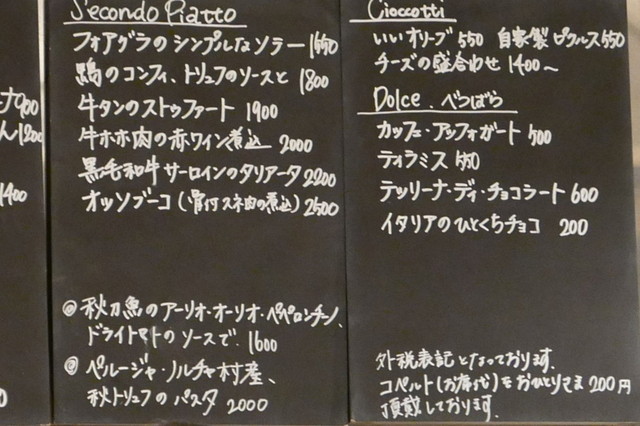 ナ900
ん1200
1400
0
Secondo Piatto
フォアグラのシンプルなソテー 1650
鴨のコンフィ、トリュフのソースと 1800
牛タンのストゥファート 1900
牛ホホ肉の赤ワイン煮込 2000
黒毛和牛サーロインのタリアータ 2200
オッソブーコ(骨付スネ肉の煮込) 2500
◎ 秋刀魚のアーリオ・オーリオ・ペペロンチーノ、
ドライトマトのソースで 1600
◎ ペルージャ・ノルチャ村産、
秋トリュフのパスタ 2000
Cioccotti
いいオリーブ 550 自家製ピクルス 550
チーズの盛合わせ 1400〜
Dolce. べつばら
カッフェ・アッフォガート 500
ティラミス 550
テッリーナ・ディ・チョコラート 600
イタリアのひとくちチョコ 200
外税表記となっております.
コペルト(お席代)をおひとりさま200円
頂戴しております.